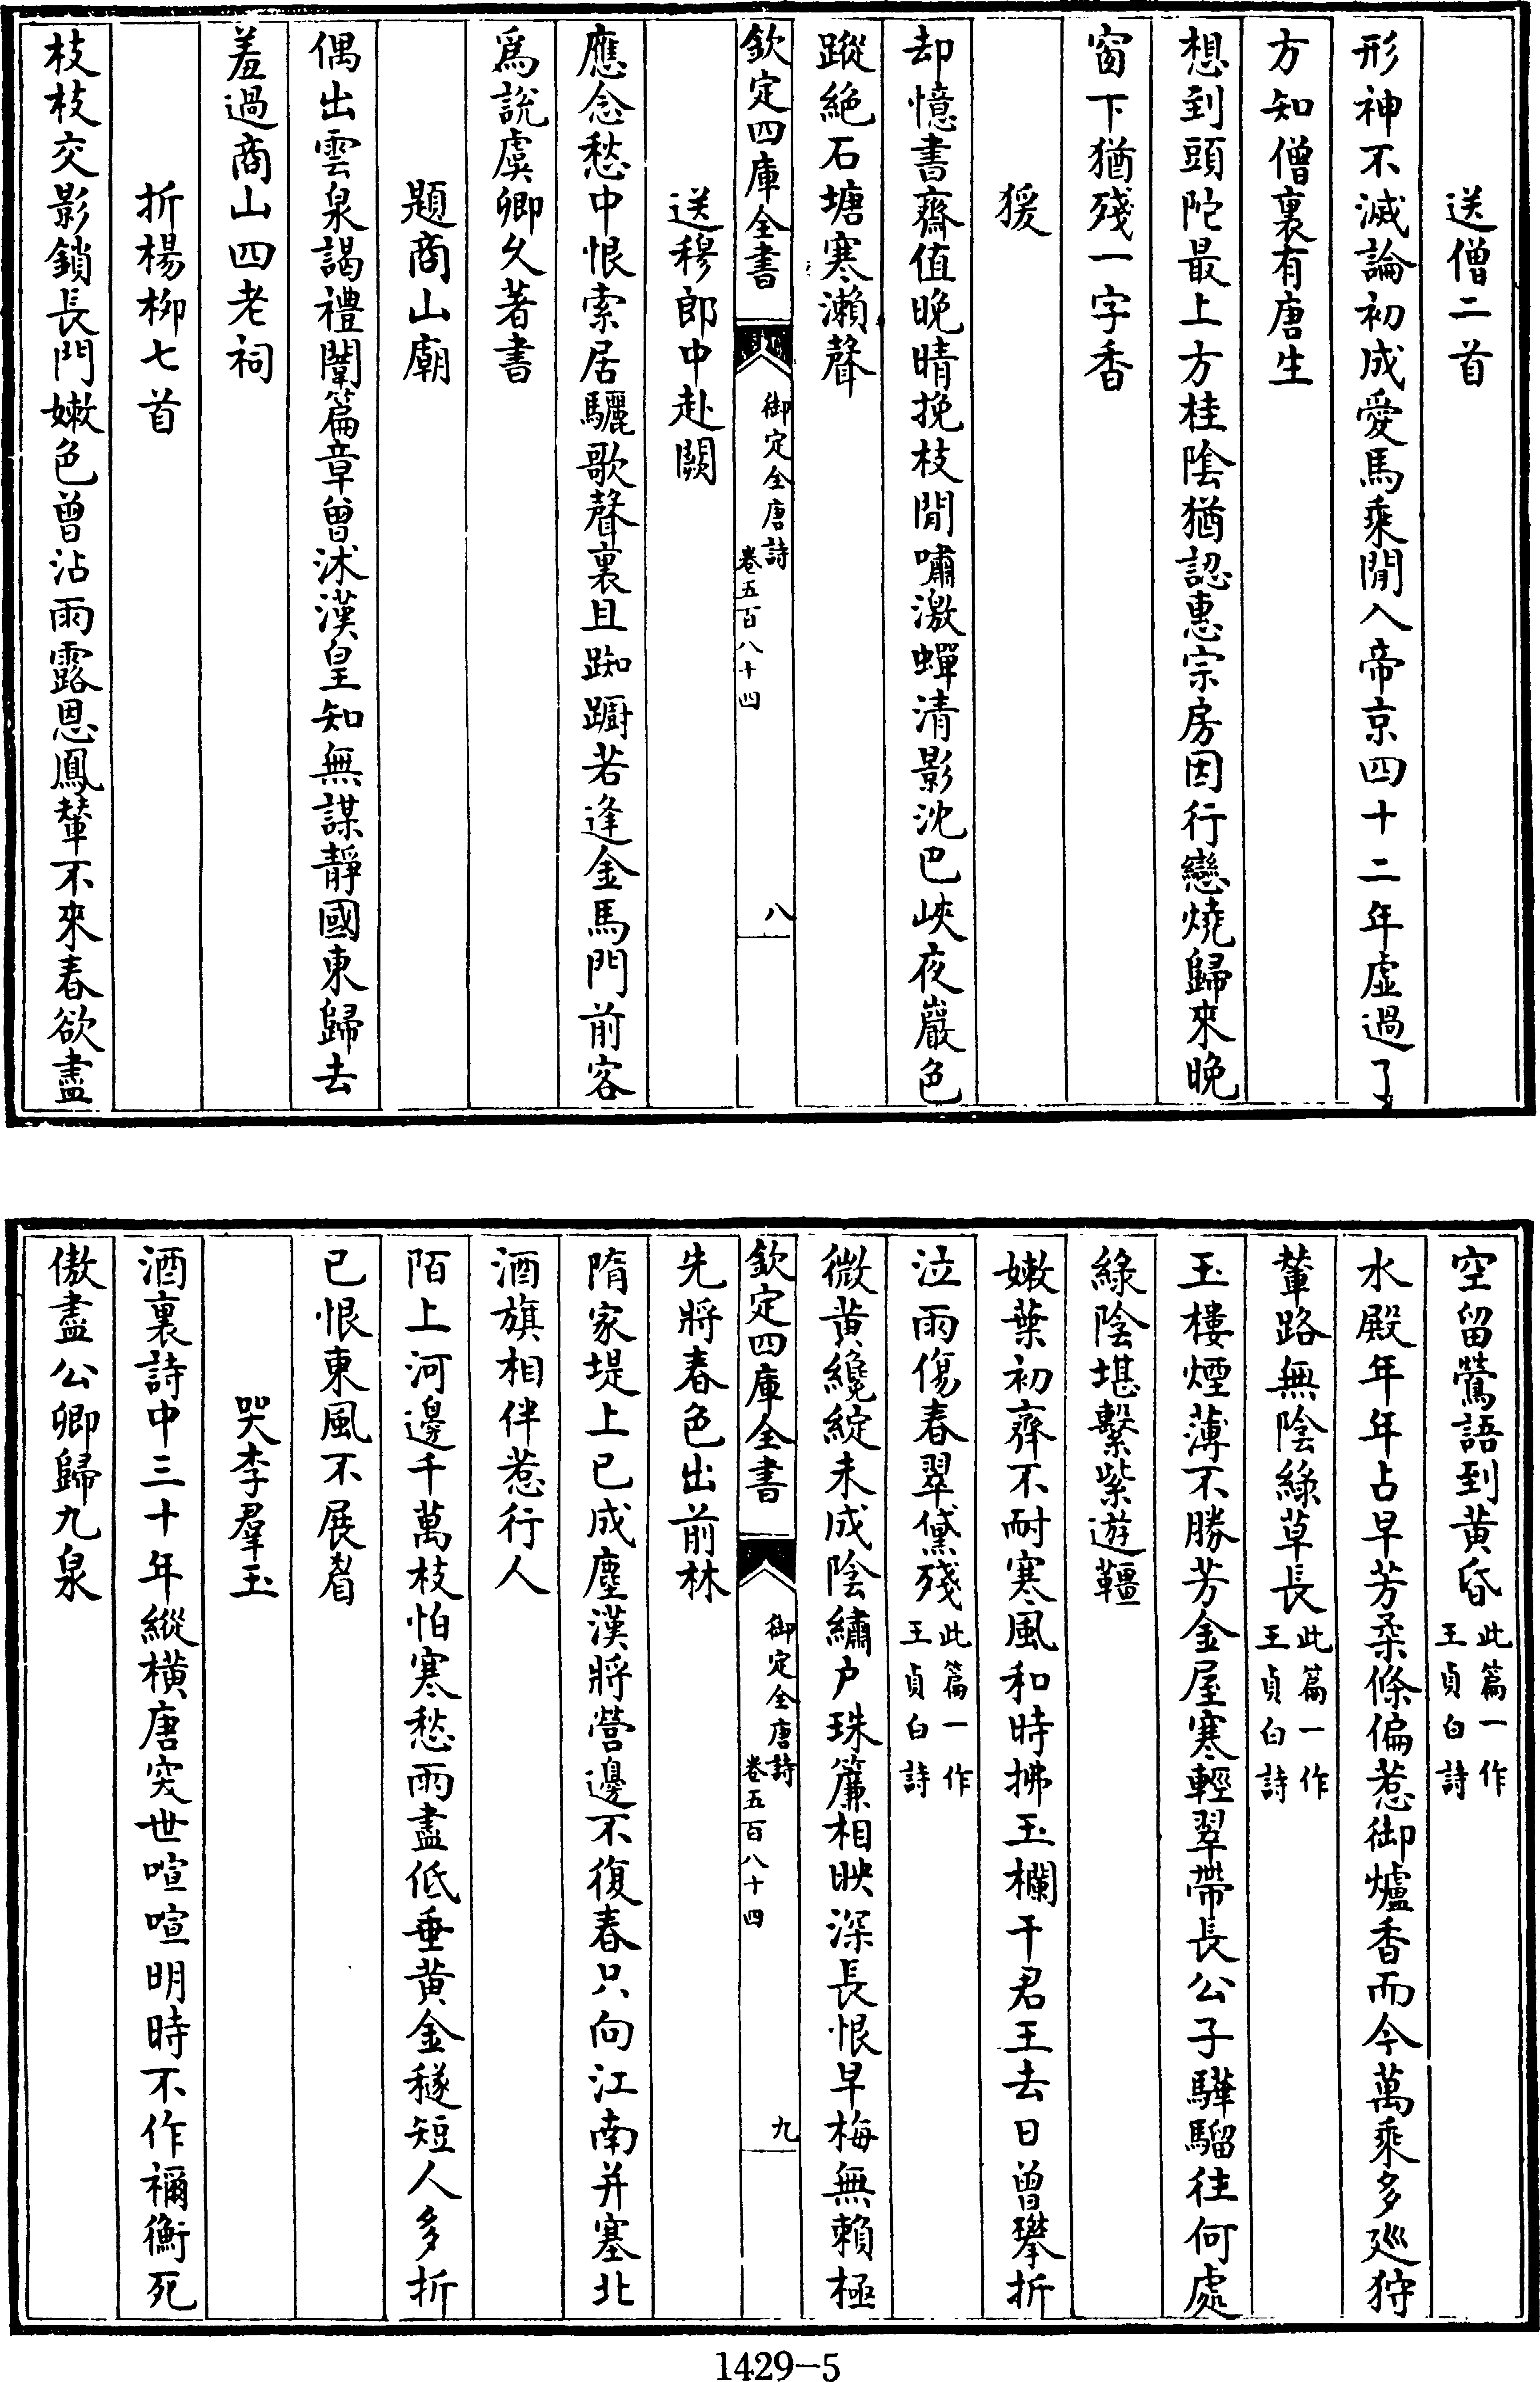 送僧二首
形神不滅論初成愛馬乘閒入帝京四十二年虛過了
方知僧裏有唐生
想到頭陀最上方桂陰猶認惠宗房因行戀燒歸來晚
窗下猶殘一字香
猨
却憶書齋值晚晴挽枝閒嘯激蟬清影沈巴峽夜巖色
蹤絶石塘寒瀨聲
欽定四庫全書
御定全唐詩
卷五百八十四
八
送穆郎中赴闕
應念愁中恨索居驪歌聲裏且踟躕若逢金馬門前客
爲説虞卿久著書
題商山廟
偶出雲泉謁禮闈篇章曾沐漢皇知無謀靜國東歸去
羞過商山四老祠
折楊柳七首
枝枝交影鎖長門嫩色曾沾雨露恩鳳輦不來春欲盡
空留鶯語到黃昏此篇一作王貞白詩
水殿年年占早芳柔條偏惹御爐香而今萬乘多廵狩
輦路無陰綠草長此篇一作王貞白詩
玉樓煙薄不勝芳金屋寒輕翠帶長公子驊騮往何處
綠陰堪繫紫遊韁
嫩葉初齊不耐寒風和時拂玉欄干君王去日曾攀折
泣雨傷春翠黛殘此篇一作王貞白詩
微黃纔綻未成陰繡户珠簾相映深長恨早梅無賴極
先將春色出前林
欽定四庫全書
御定全唐詩
卷五百八十四
九
隋家堤上已成塵漢將營邊不復春只向江南并塞北
酒旗相伴惹行人
陌上河邊千萬枝怕寒愁雨盡低垂黃金穟短人多折
已恨東風不展眉
哭李羣玉
酒裏詩中三十年縱橫唐突世喧喧明時不作禰衡死
傲盡公卿歸九泉
1429-5